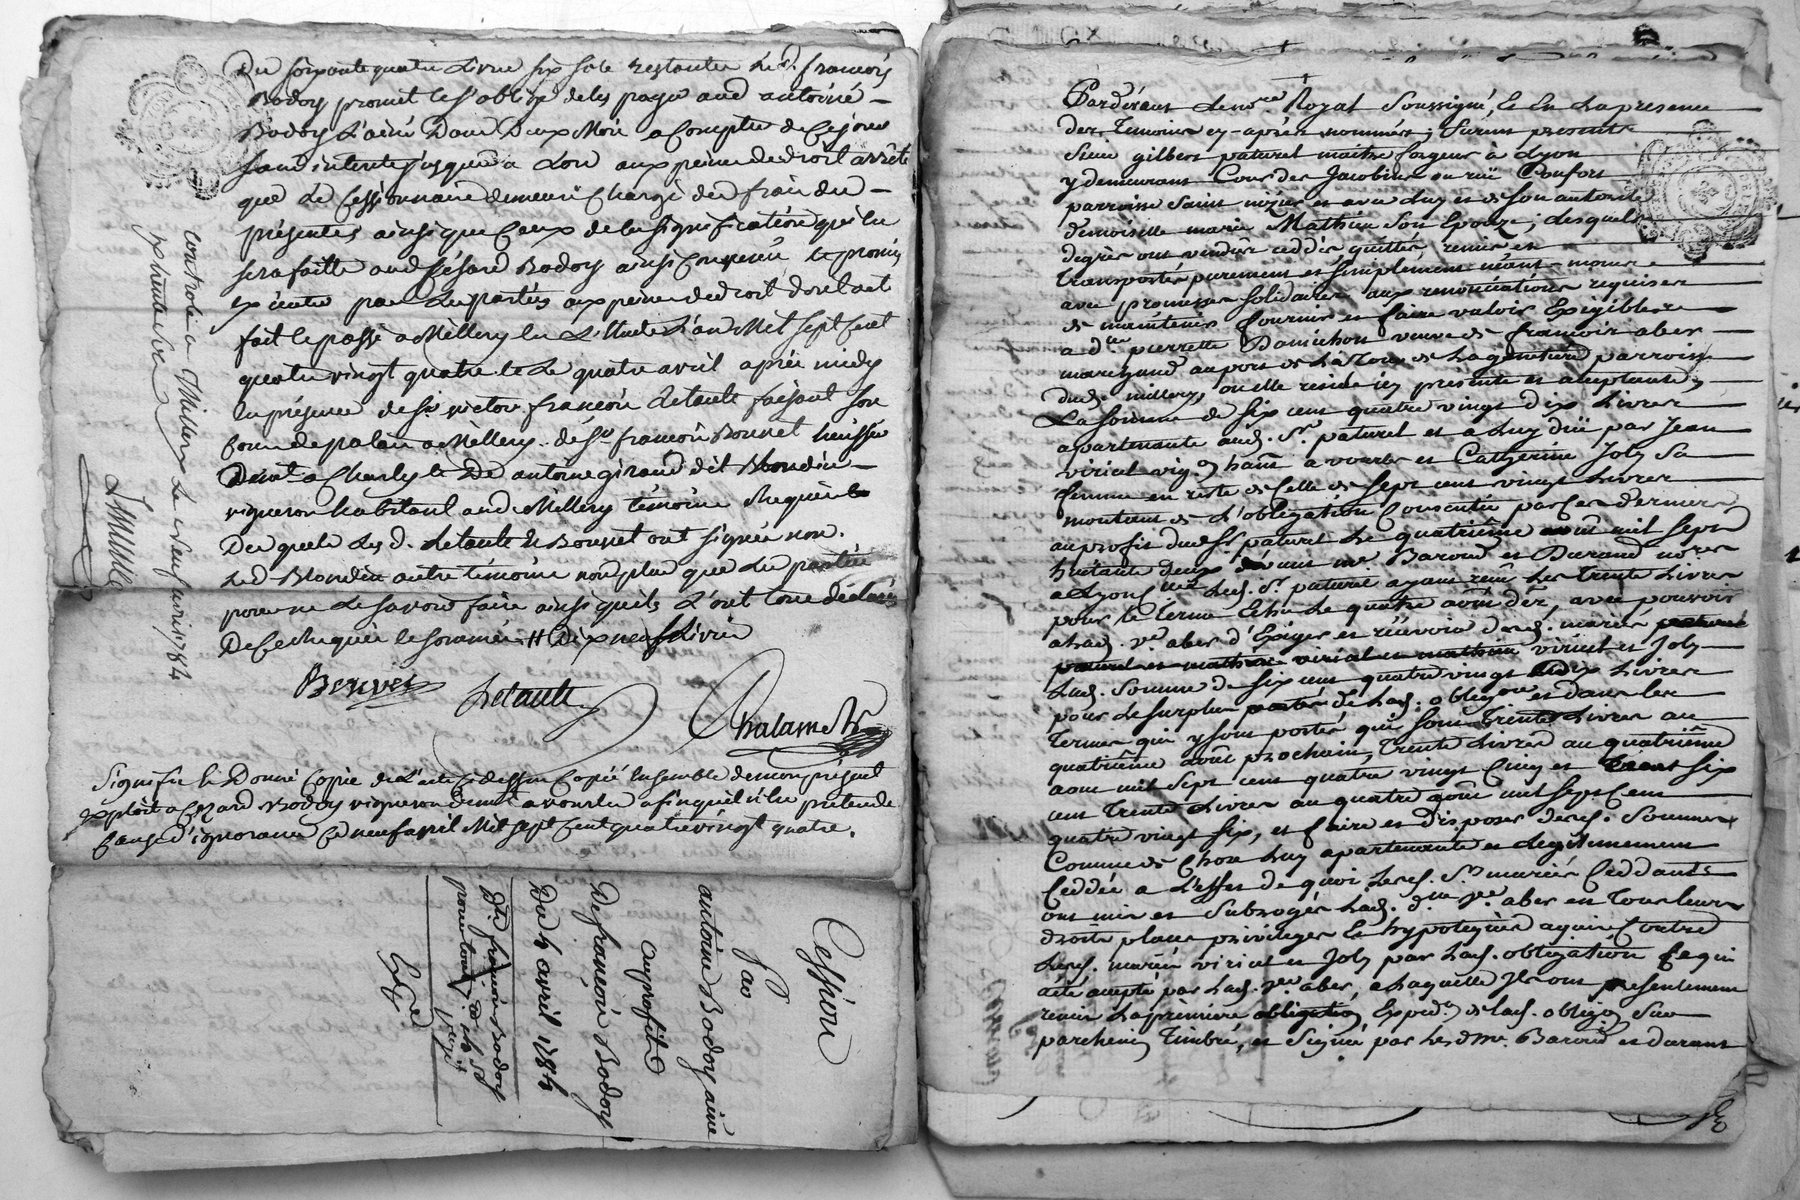 De soixante quatre Livres six sols restantes led. françois
Bodoy promet et s'oblige de les payer aud antoine
Bodoy L'ainé Dans Deux Mois a Compter de Ce jour
sans interets jusques a Lors aux peines de droit arrêté
que Le Cessionnaire demeure Chargé des frais des
présentes ainsi que Ceux de la signification qui en
sera faitte aud Césard Bodoy ainsi Convenu et promis
exécuter par Les parties aux peines de droit dont act
fait et passé a Millery en L'Etude L'an Mil sept Cent
quatre vingt quatre et Le quatre avril après midy
En présence de Sr victor françois Détante faisant son
de palais a Millery, de Sr françois Bonnet huissier
Demt a Charly et De antoine giraud dit Blondin
vigneron habitant aud. Millery témoins Requis
Des quels Les d. Détante et Bonnet ont signés non
Led. Blondin autre témoin non plus que Les parties
pour ne Le savoir faire ainsi qu'ils L'ont tous déclarés
De Ce enquis et sommés # Dix neuf Livres
Détante
Chalamel
Signifié et Donné Copie de L'acte Ci dessus Copié Ensemble de mon présent
exploit a Cezard Bodoy vigneron demt a vourles a fin qu'il n'en prétende
Cause d'ignorance Ce neuf avril Mil sept Cent quatre vingt quatre.
Controlé a Millery Le neuf avril 1784
Cession
Par
antoine Bodoy ainé
au profit de
De françois Bodoy
Du 4 avril 1784
Sr. françois Bodoy
pour tout
Pardevant Le no.re Royal Soussigné, et En La presence
des Temoins cy-après nommés; furent presents
Sieur gilbert paturel maitre forgeur à Lyon
y demeurant Cour des Jacobins ou ruë Confort
parroisse Saint nizier et avec Luy et de Son autorité
demoiselle marie Mathieu Son Epouze; lesquels
degrés ont vendus ceddés quittés, remis et
transportés purement et simplement
avec promesses solidaires aux renonciations requises
de maintenir fournir et faire valoir Exigible
a d.lle pierrette Damichon veuve de françois aber
marchand au port de La Tour de parroisse
dud. millery, ou elle reside icy presente et acceptante,
La somme de Six cent quatre vingt dix Livres
apartenante aud. Sr. paturel et a Luy düe par Jean
viriat vig.on a vourles et Catherine Joly Sa
femme en reste de Celle de sept cent vingt Livres
montant de L'obligation Consentie par Ces derniers
au profit dud. Sr. paturel Le quatrième aout mil sept
huitante deux devant me. Baroud et Durand nores
a Lyon, Led. Sr. paturel ayant reçû Les Trente Livres
pour le terme Echu Le quatre août der, avec pouvoir
a Lad. ve. aber d'Exiger et recevoir desd. mariés
viriat et Joly
Lad. Somme de Six cent quatre vingt dix Livres
pour Le Surplus de Lad. obligon et dans les
termes qui y sont portés qui sont Trente Livres au
quatrième août prochain, Trente Livres au quatrième
aout mil Sept cent quatre vingt Cinq et Six
cent Trente Livres au quatre août mil Sept Cent
quatre vingt Six, et faire et disposer desd. Sommes
Comme de Chose Luy apartenante et Legitimement
Ceddée a L'effet de quoi Lesd. Srs mariés Ceddants
ont mis et Subrogés Lad. d.lle ve. aber en Tous leurs
droits places privileges et hypoteques ayant Contre
Lesd. mariés viriat et Joly par Lad. obligation Ce qui
a été accepté par Lad. ve. aber, a Laquelle Ils ont presentement
remis La première Exped.on de Lad. obligon Sur
parchemin Timbré, et Signé par Lesd. mes. Baroud et durant